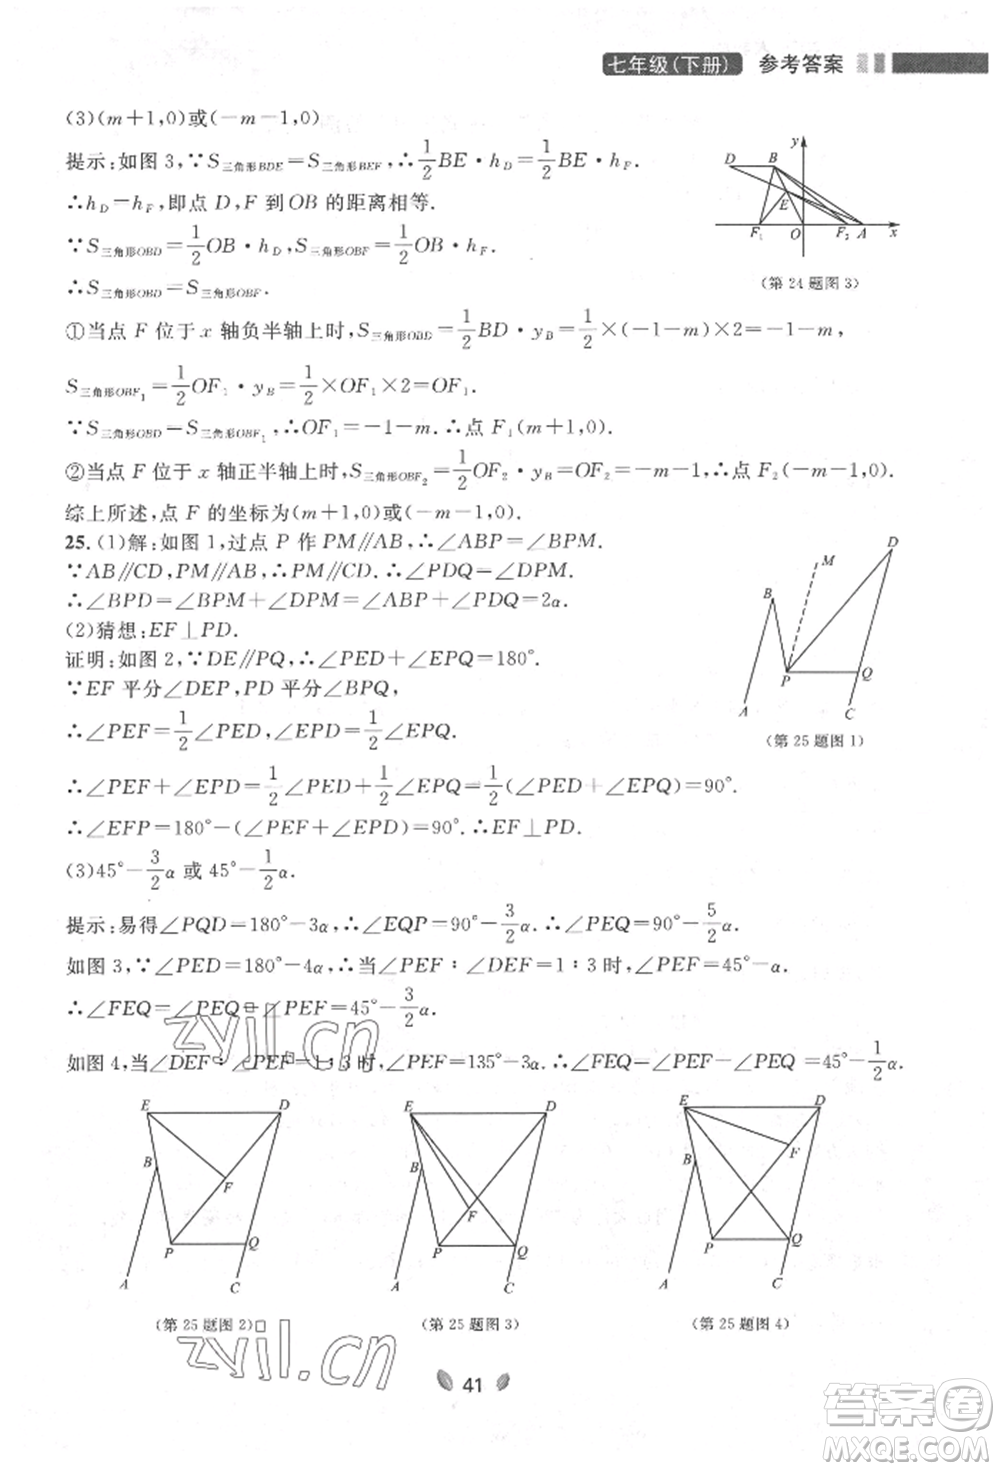 七年级(下册) 参考答案
(3)(m+1,0)或(-m-1,0)
提示:如图 3,∵S三角形BDE=S三角形BEF,∴1/2BE·hD=1/2BE·hF.
∴hD=hF,即点 D,F 到OB 的距离相等.
∵S三角形OBD=1/2OB·hD,S三角形OBF=1/2OB·hF,
∴S三角形OBD=S三角形OBF.
①当点 F 位于 x 轴负半轴上时,S三角形OBD=1/2BD·yB=1/2×(-1-m)×2=-1-m,
S三角形OBF1=1/2OF1·yB=1/2×OF1×2=OF1.
∵S三角形OBD=S三角形OBF1,∴OF1=-1-m.∴点 F1(m+1,0).
②当点 F 位于 x 轴正半轴上时,S三角形OBF2=1/2OF2·yB=OF2=-m-1,∴点 F2(-m-1,0).
综上所述,点 F 的坐标为(m+1,0)或(-m-1,0).
y
D B
E
F1 O F2 A x
(第 24 题图 3)
25.(1)解:如图 1,过点 P 作 PM∥AB,∴∠ABP=∠BPM.
∵AB∥CD,PM∥AB,∴PM∥CD.∴∠PDQ=∠DPM=α.
∴∠BPD=∠BPM+∠DPM=∠ABP+∠PDQ=2α.
(2)猜想:EF⊥PD.
证明:如图 2,∵DE∥PQ,∴∠PED+∠EPQ=180°.
∵EF 平分∠DEP,PD 平分∠BPQ,
∴∠PEF=1/2∠PED,∠EPD=1/2∠EPQ.
∴∠PEF+∠EPD=1/2∠PED+1/2∠EPQ=1/2(∠PED+∠EPQ)=90°.
∴∠EFP=180°-(∠PEF+∠EPD)=90°.∴EF⊥PD.
D
M
B
P Q
A C
(第 25 题图 1)
(3)45°-3/2α 或 45°-1/2α.
提示:易得∠PQD=180°-3α,∴∠EQP=90°-3/2α.∴∠PEQ=90°-5/2α.
如图 3,∵∠PED=180°-4α,∴当∠PEF∶∠DEF=1∶3时,∠PEF=45°-α.
∴∠FEQ=∠PEQ-∠PEF=45°-3/2α.
如图 4,当∠DEF∶∠PEF=1∶3时,∠PEF=135°-3α.∴∠FEQ=∠PEF-∠PEQ=45°-1/2α.
zyjl.cn
E D
B
F
P Q
A C
(第 25 题图 2)
E D
B
F
P Q
A C
(第 25 题图 3)
E D
B F
P Q
A C
(第 25 题图 4)
zyjl.cn
41
答案圈
MXQE.COM